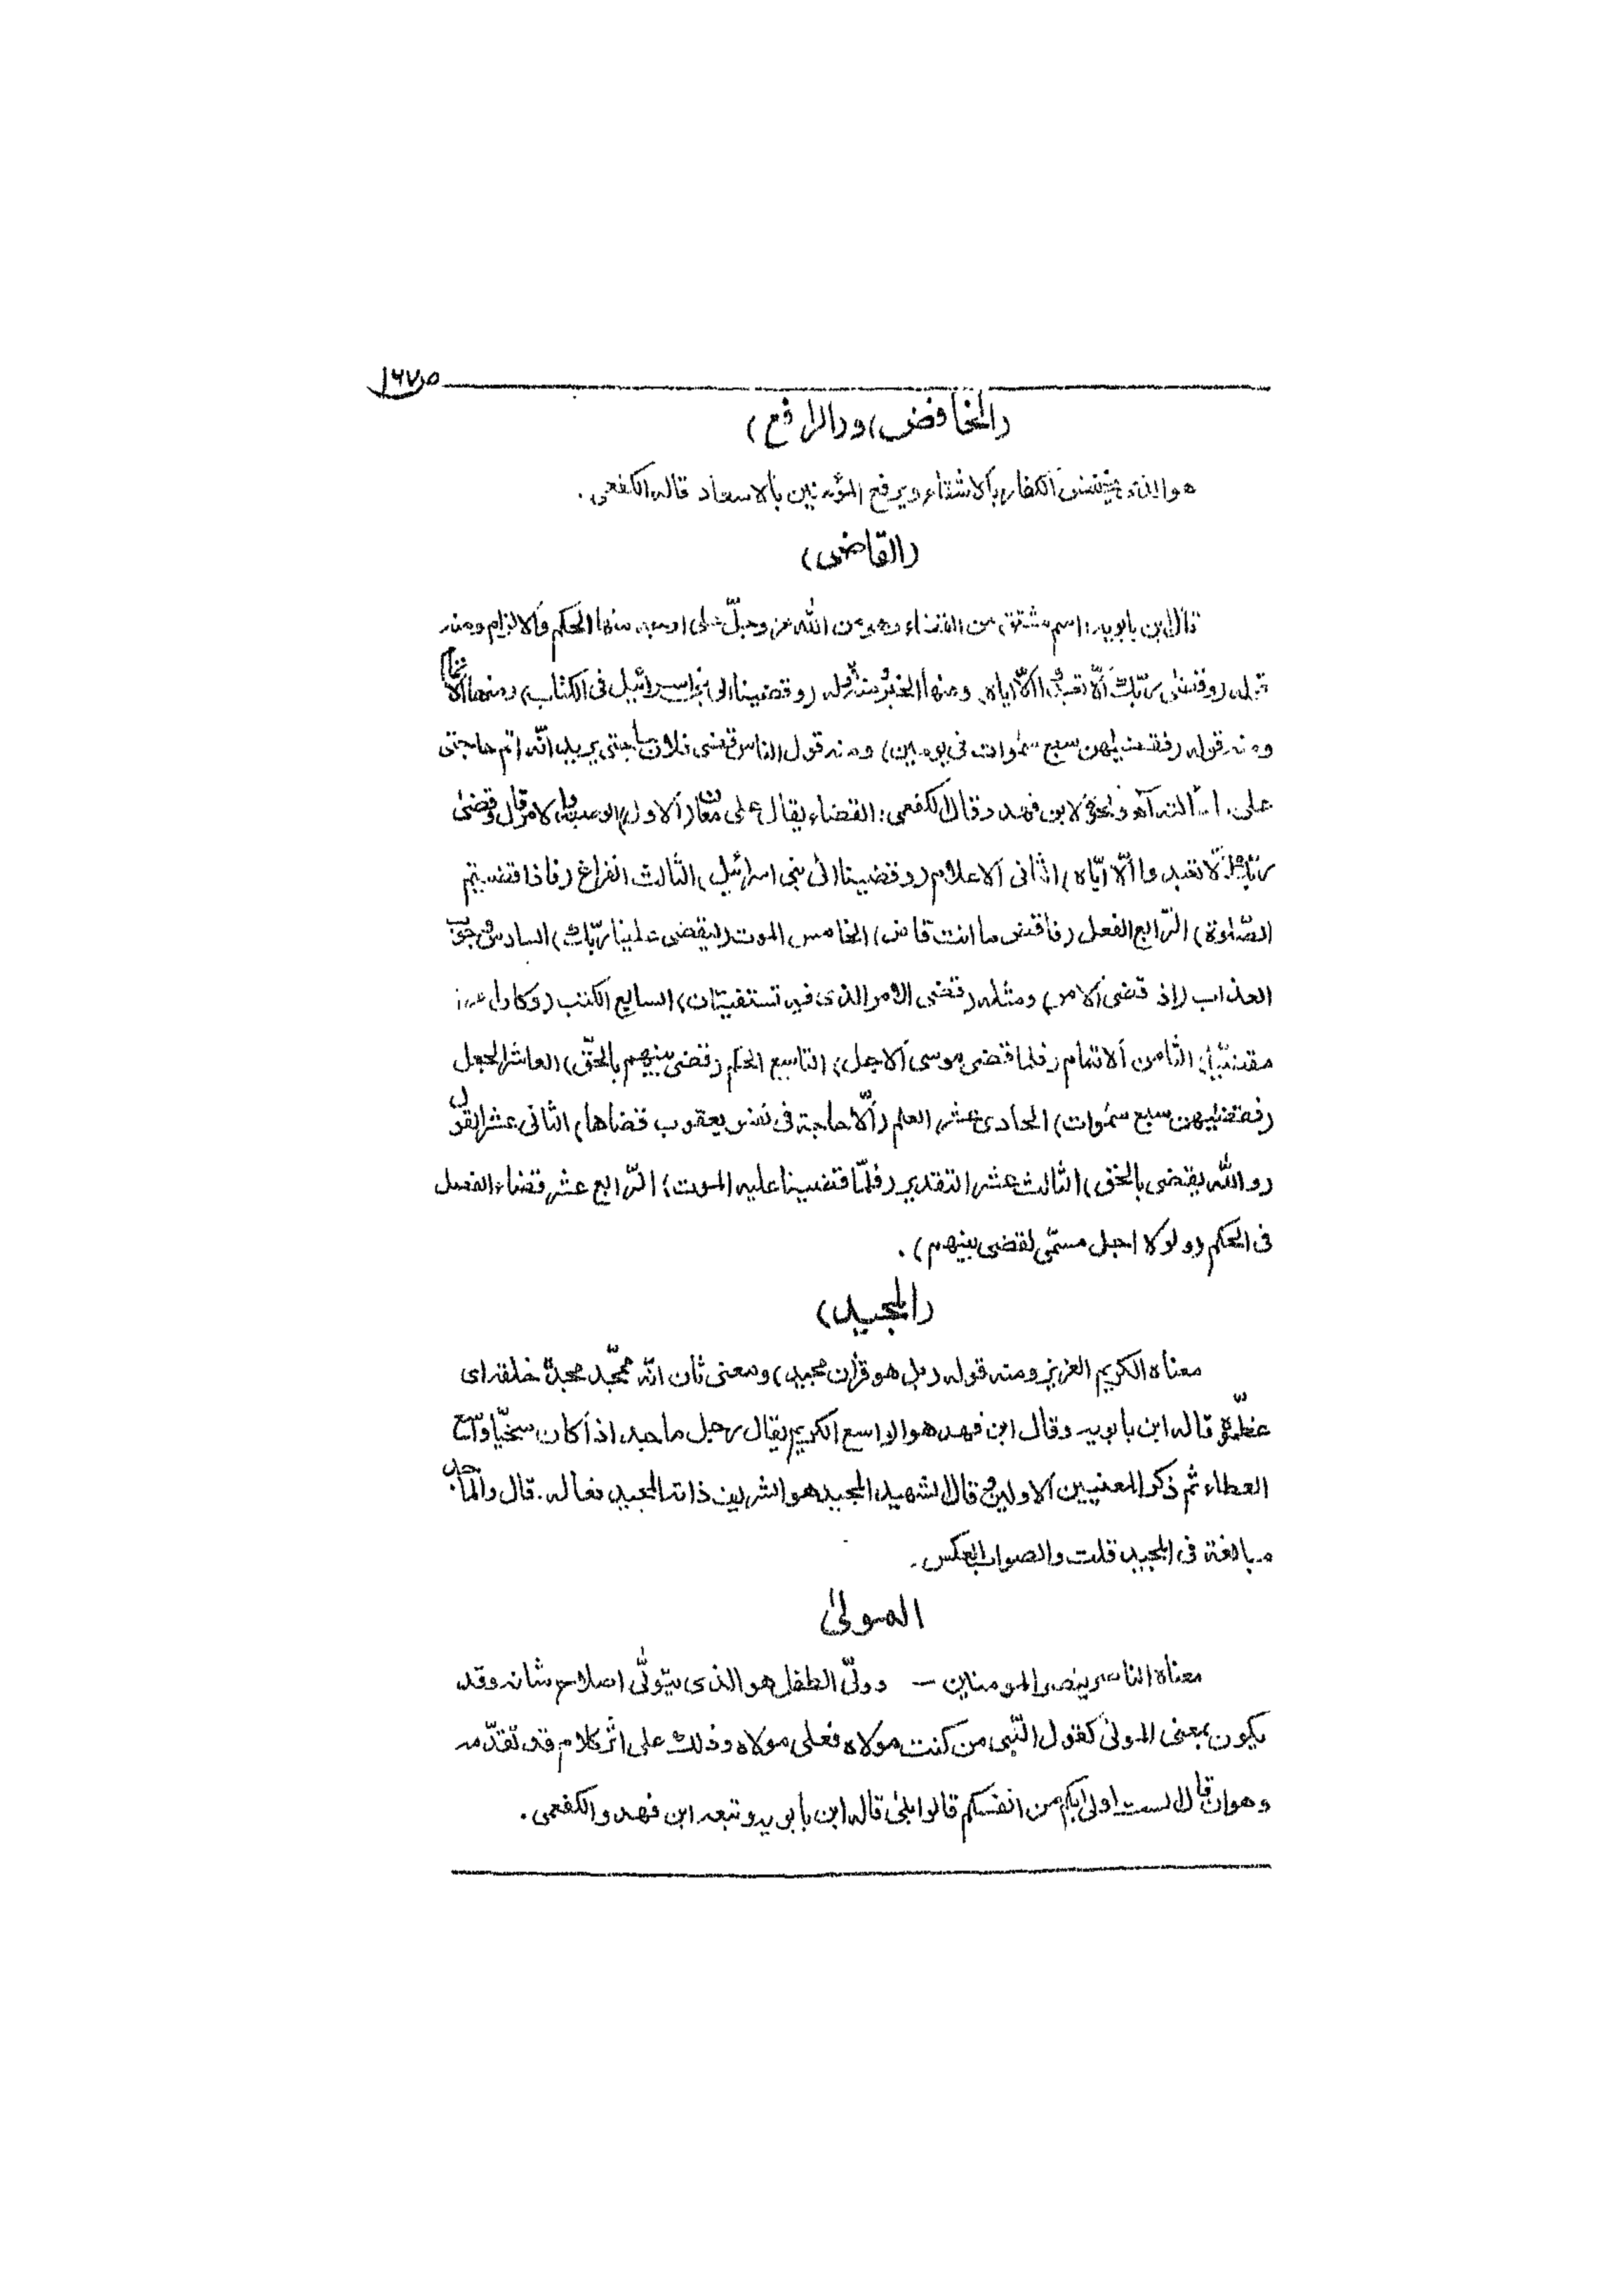 ص ١٦٧
(الخافض) و (الرافع)
هو الذى يخفض الكفار بالاشقاء ويرفع المؤمنين بالاسعاد قاله الكفعمى .
(القاضى)
قال ابن بابويه : اسم مشتق من القضاء وهو من الله عز وجلّ على اوجه منها الحكم والالزام ومنه
قوله (وقضى ربّك ألّا تعبدوا الّا ايّاه) ومنها الخبر منه قوله (وقضينا الى بنى اسرائيل فى الكتاب) ومنها الاتمام
ومنه قوله (فقضيهن سبع سموات فى يومين) ومنه قول الناس قضى فلان حاجتى يريد انّه اتم حاجتى
على ونحوه لابن فهد وقال الكفعمى : القضاء يقال على معان (الاول) الوصية والامر قال (وقضى
ربّك الّا تعبدوا الّا ايّاه) الثانى الاعلام (وقضينا الى بنى اسرائيل) الثالث الفراغ (فاذا قضيتم
الصّلوة) الرّابع الفعل (فاقض ما انت قاض) الخامس الموت (ليقض علينا ربّك) السادس وجوب
العذاب (اذ قضى الامر) ومثله (قضى الامر الذى فيه تستفتيان) السابع الكتب (وكان امرا
مقضيّا) الثامن الاتمام (فلما قضى موسى الاجل) التاسع الحكم (قضى بينهم بالحقّ) العاشر الجعل
(فقضيهن سبع سموات) الحادى عشر العلم (الّا حاجة فى نفس يعقوب قضاها) الثانى عشر القول
(والله يقضى بالحق) الثالث عشر التقدير (فلمّا قضينا عليه الموت) الرّابع عشر قضاء الفصل
فى الحكم (ولولا اجل مسمّى لقضى بينهم) .
(المجيد)
معناه الكريم العزيز ومنه قوله (بل هو قرآن مجيد) ومعنى ثان انّه ممجّد مجده خلقه اى
عظّموه قاله ابن بابويه وقال ابن فهد هو الواسع الكريم يقال رجل ماجد اذا كان سخيّا واسع
العطاء ثم ذكر المعنيين الاولين وقال الشهيد المجيد هو الشريف ذاته الجميل فعاله . قال والماجد
مبالغة فى المجيد قلت والصواب العكس .
المولى
معناه الناصر ينصر المومنين — وولىّ الطفل هو الذى يتولّى اصلاح شانه وقد
يكون بمعنى المولى كقول النّبى من كنت مولاه فعلى مولاه وذلك على اثر كلام قد تقدّمه
وهو ان قال الست اولى بكم من انفسكم قالوا بلى قاله ابن بابويه وتبعه ابن فهد والكفعمى .